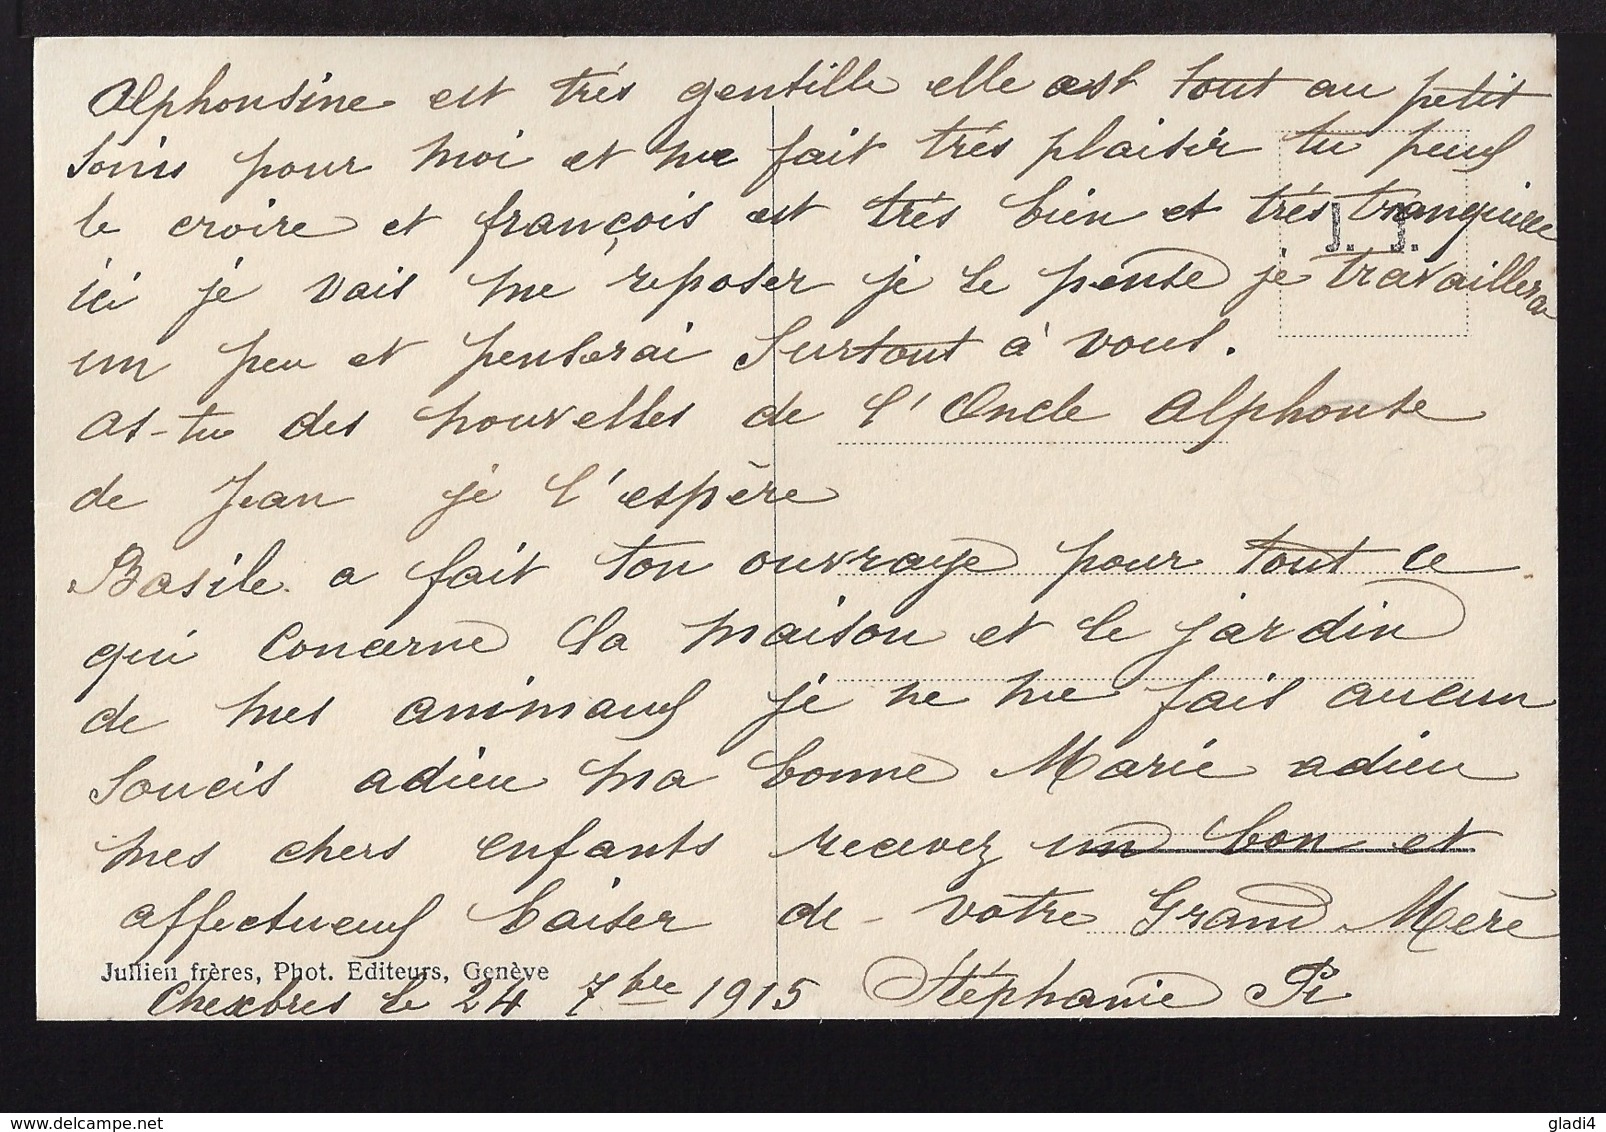 Alphonsine est très gentille elle est tout au petit
soins pour moi et me fait très plaisir tu peux
le croire et françois est très bien et très tranquille
J. J.
ici je vais me reposer je le pense je travaillerai
un peu et penserai surtout à vous.
as-tu des nouvelles de l'Oncle Alphonse
de Jean je l'espère
Basile a fait ton ouvrage pour tout ce
qui concerne la maison et le jardin
de mes animaux je ne me fais aucun
soucis adieu ma bonne Marie adieu
mes chers enfants recevez un bon et
affectueux baiser de votre Grand Mère
Jullien frères, Phot. Editeurs, Genève
Chexbres le 24 7bre 1915 Stéphanie Pi
delcampe.net
gladi4